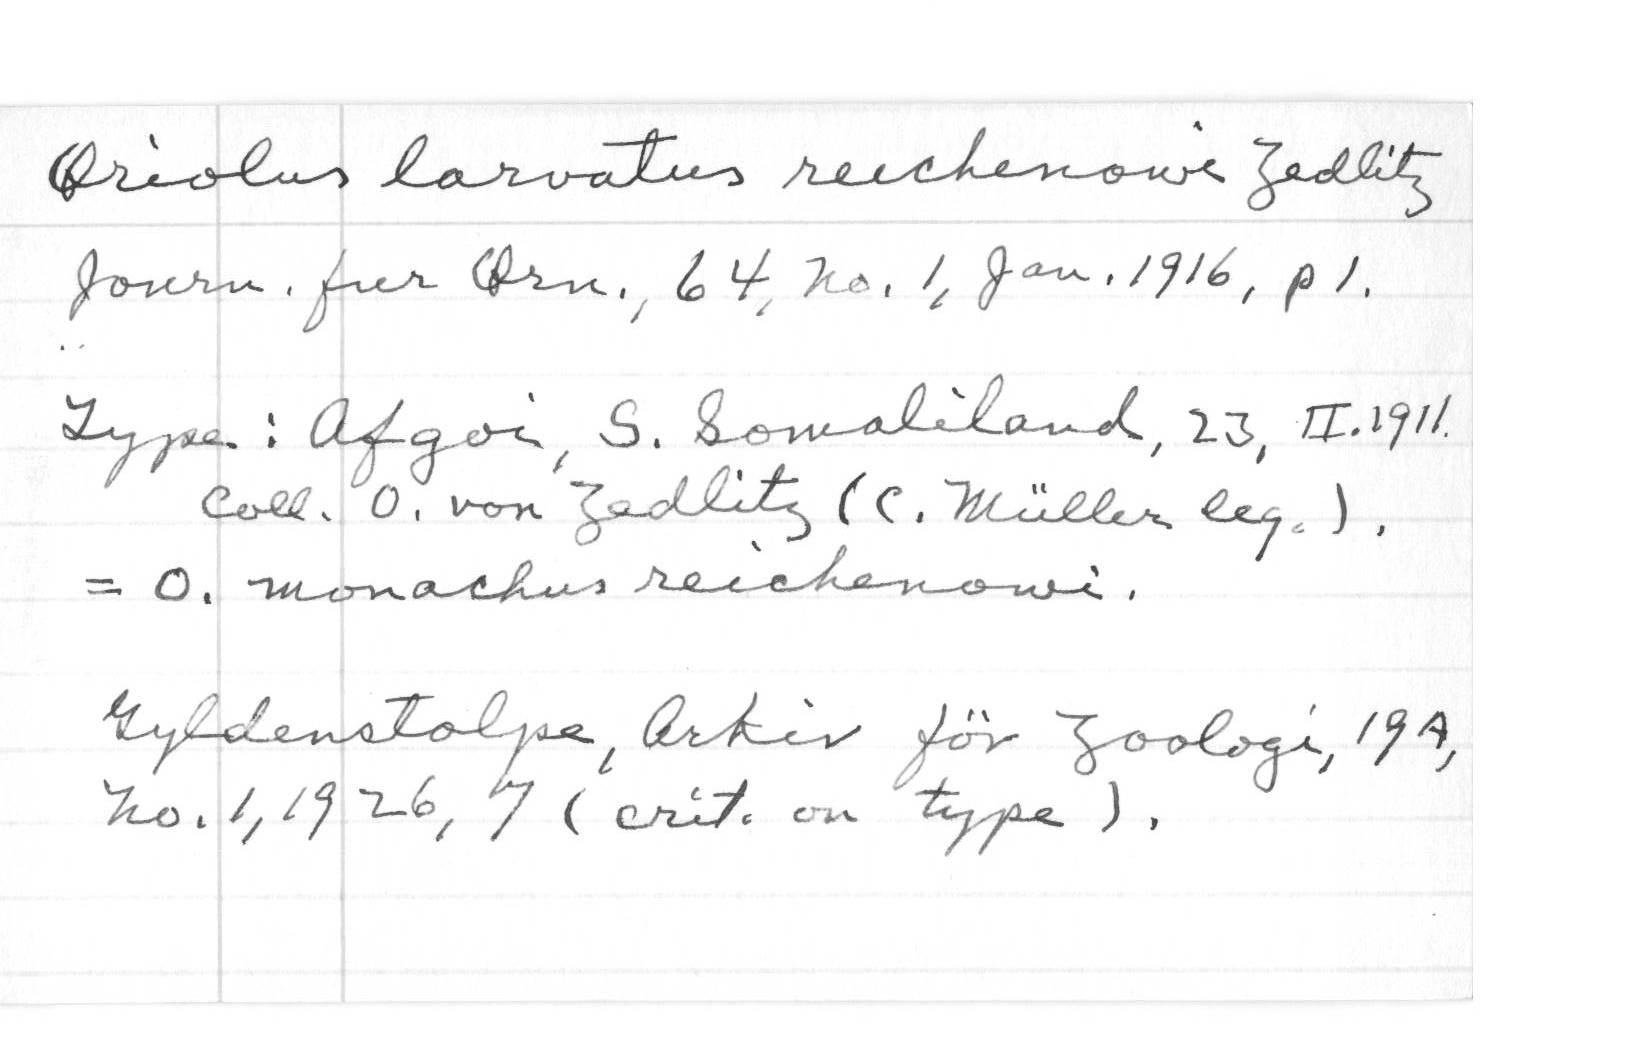 Oriolus larvatus reichenowi Zedlitz
Journ. fur Orn., 64, No. 1, Jan. 1916, p 1.
Type: Afgoi, S. Somaliland, 23, II. 1911.
Coll. O. von Zedlitz (C. Müller leg.).
= O. monachus reichenowi.
Gyldenstolpe, Arkiv för Zoologi, 19A,
No. 1, 1926, 7 (crit. on type).